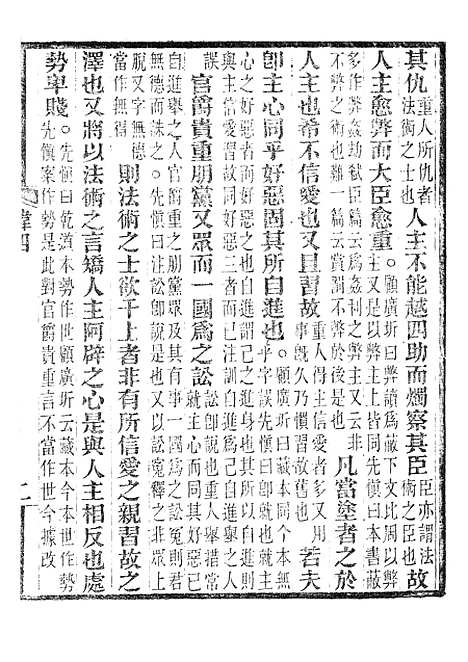 其仇重人所仇者法術之士也人主不能越四助而燭察其臣臣亦謂法術之臣也故
人主愈弊而大臣愈重顧廣圻曰弊讀爲蔽下文此周以弊主又是以弊主上皆同先愼曰本書蔽
多作弊姦劫弑臣篇爲姦利之弊人主又云非不弊之術也難一篇云不弊於後是也凡當塗者之於
人主也希不信愛也又且習故重人得主信愛者多又用事旣久乃慣習故舊也若夫
卽主心同乎好惡固其所自進也顧廣圻云藏本今本無乎字誤先愼曰卽就也就主
心之好惡而好之惡之自進之身也其所以自進者
與主信愛習故同好惡三者而已注訓自進爲自進舉之人
誤官爵貴重朋黨又眾而一國爲之訟就主心而同好惡自進舉之人官爵重之朋黨眾及其有事一國爲之訟冤則君無德而誅之先愼曰注訟卽說是也冤字
脫又字無德當作無得則法術之士欲干上者非有所信愛之親習故之
澤也又將以法術之言矯人主阿辟之心是與人主相反也處
勢卑賤先愼曰乾道本勢作世顧廣圻云藏本今本世作勢先愼案作勢是此對官爵貴重言不當作世今據改
韓四